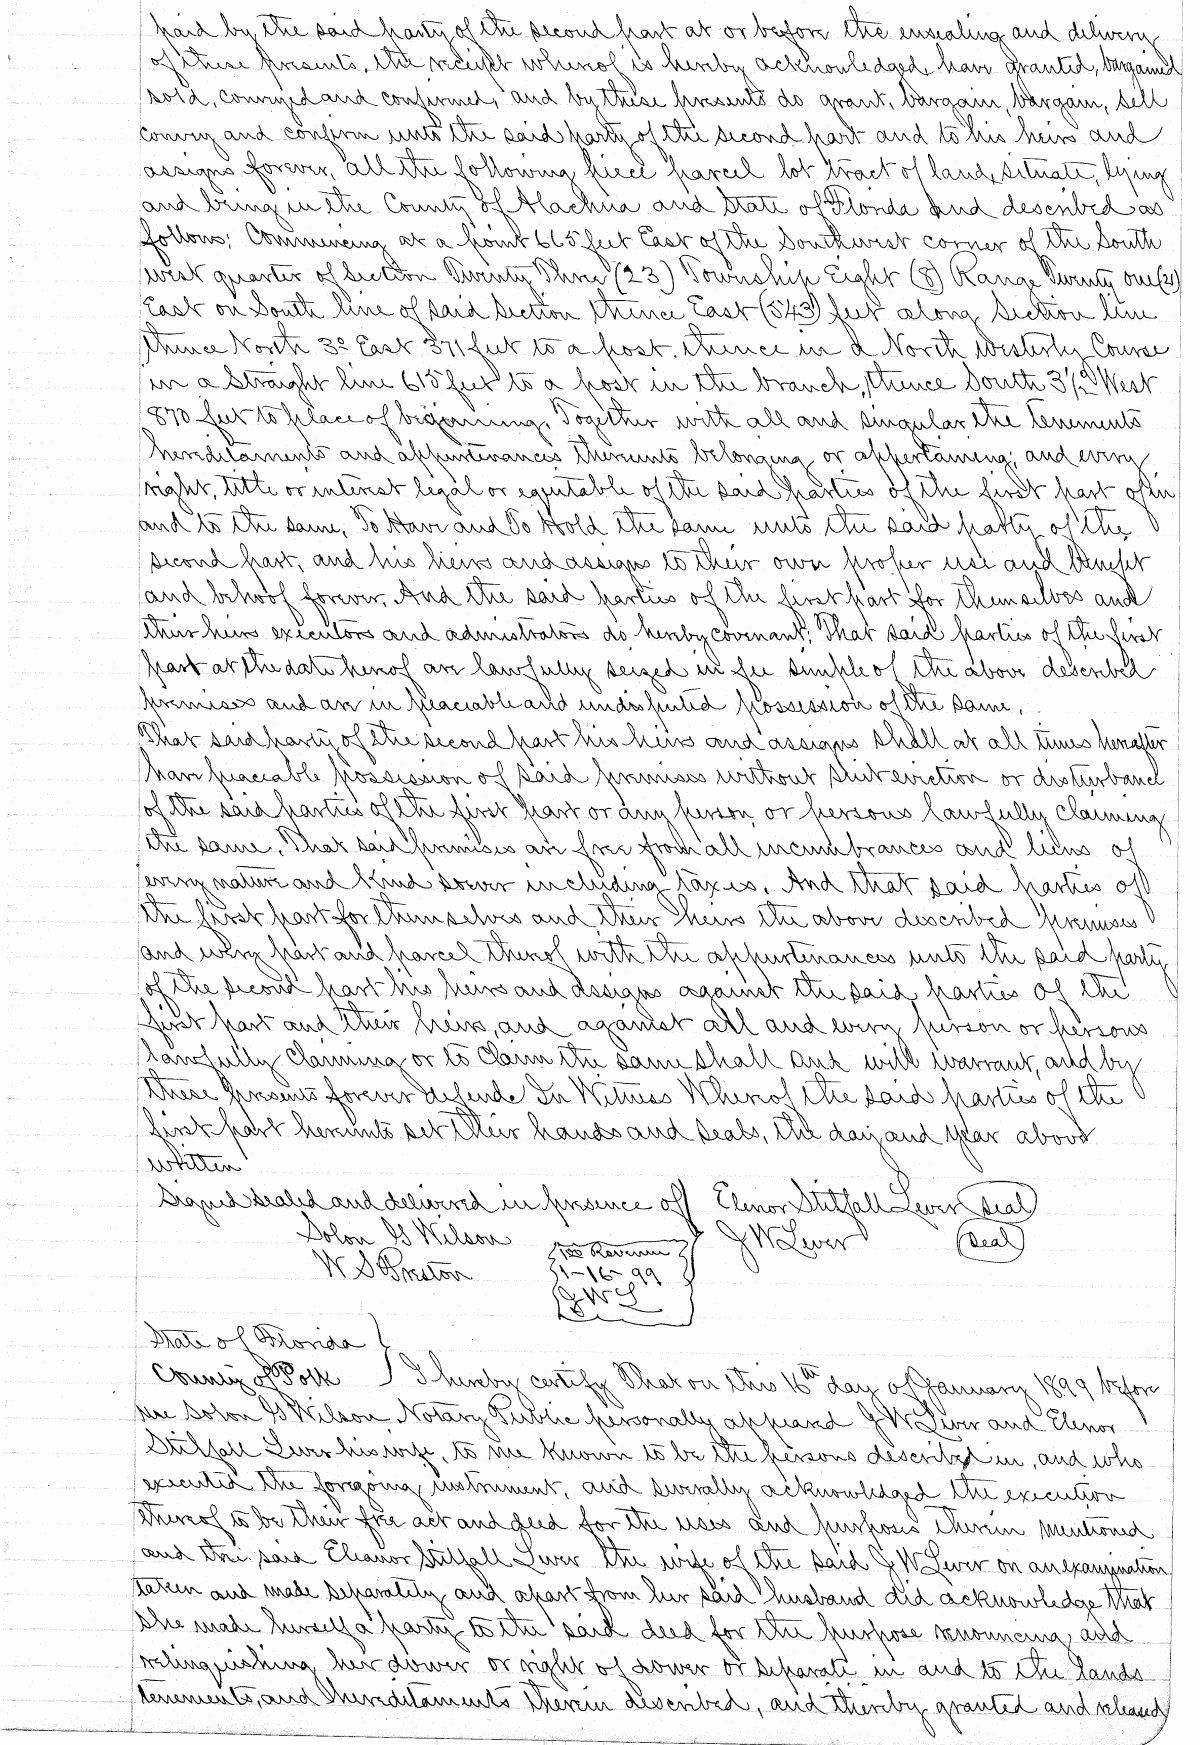 paid by the said party of the second part at or before the ensealing and delivery
of these presents, the receipt whereof is hereby acknowledged, have granted, bargained
sold, conveyed and confirmed, and by these presents do grant, bargain, bargain, sell
convey and confirm unto the said party of the second part and to his heirs and
assigns forever, all the following piece parcel lot tract of land, situate, lying
and being in the County of Alachua and State of Florida and described as
follows; Commencing at a point 665 feet East of the Southwest corner of the South
west quarter of Section Twenty Three (23) Township Eight (8) Range Twenty one (21)
East on South line of said Section thence East (543) feet along Section line
thence North 3° East 371 feet to a post. thence in a North Westerly Course
in a Straight line 615 feet to a post in the branch, thence South 3½° West
870 feet to place of beginning. Together with all and singular the tenements
hereditaments and appurtenances thereunto belonging or appertaining; and every
right, title or interest legal or equitable of the said parties of the first part of in
and to the same. To Have and To Hold the same unto the said party of the
second part, and his heirs and assigns to their own proper use and benefit
and behoof forever. And the said parties of the first part for themselves and
their heirs executors and admistrators do hereby covenant; That said parties of the first
part at the date hereof are lawfully seized in fee simple of the above described
premises and are in peaceable and undisputed possession of the same.
That said party of the second part his heirs and assigns shall at all times hereafter
have peaceable possession of said premises without suit eviction or disturbance
of the said parties of the first part or any person or persons lawfully claiming
the same. That said premises are free from all incumbrances and liens of
every nature and kind soever including taxes. And that said parties of
the first part for themselves and their heirs the above described premises
and every part and parcel thereof with the appurtenances unto the said party
of the second part his heirs and assigns against the said parties of the
first part and their heirs, and against all and every person or persons
lawfully claiming or to claim the same shall and will warrant, and by
these presents forever defend. In Witness Whereof the said parties of the
first part hereunto set their hands and seals, the day and year above
written
Signed sealed and delivered in presence of Elenor Stitfall Lever seal
Solon G Wilson J W Lever seal
W S Preston
Revenue
1-16-99
J W L
State of Florida
County of Polk I hereby certify That on this 16th day of January 1899 before
me Solon G Wilson Notary Public personally appeared J W Lever and Elenor
Stitfall Lever his wife, to me known to be the persons described in, and who
executed the foregoing instrument, and severally acknowledged the execution
thereof to be their free act and deed for the uses and purposes therein mentioned
and the said Eleanor Stitfall Lever the wife of the said J W Lever on an examination
taken and made separately and apart from her said husband did acknowledge that
she made herself a party to the said deed for the purpose renouncing and
relinquishing her dower or right of dower or separate in and to the lands
tenements, and hereditaments therein described, and thereby granted and released